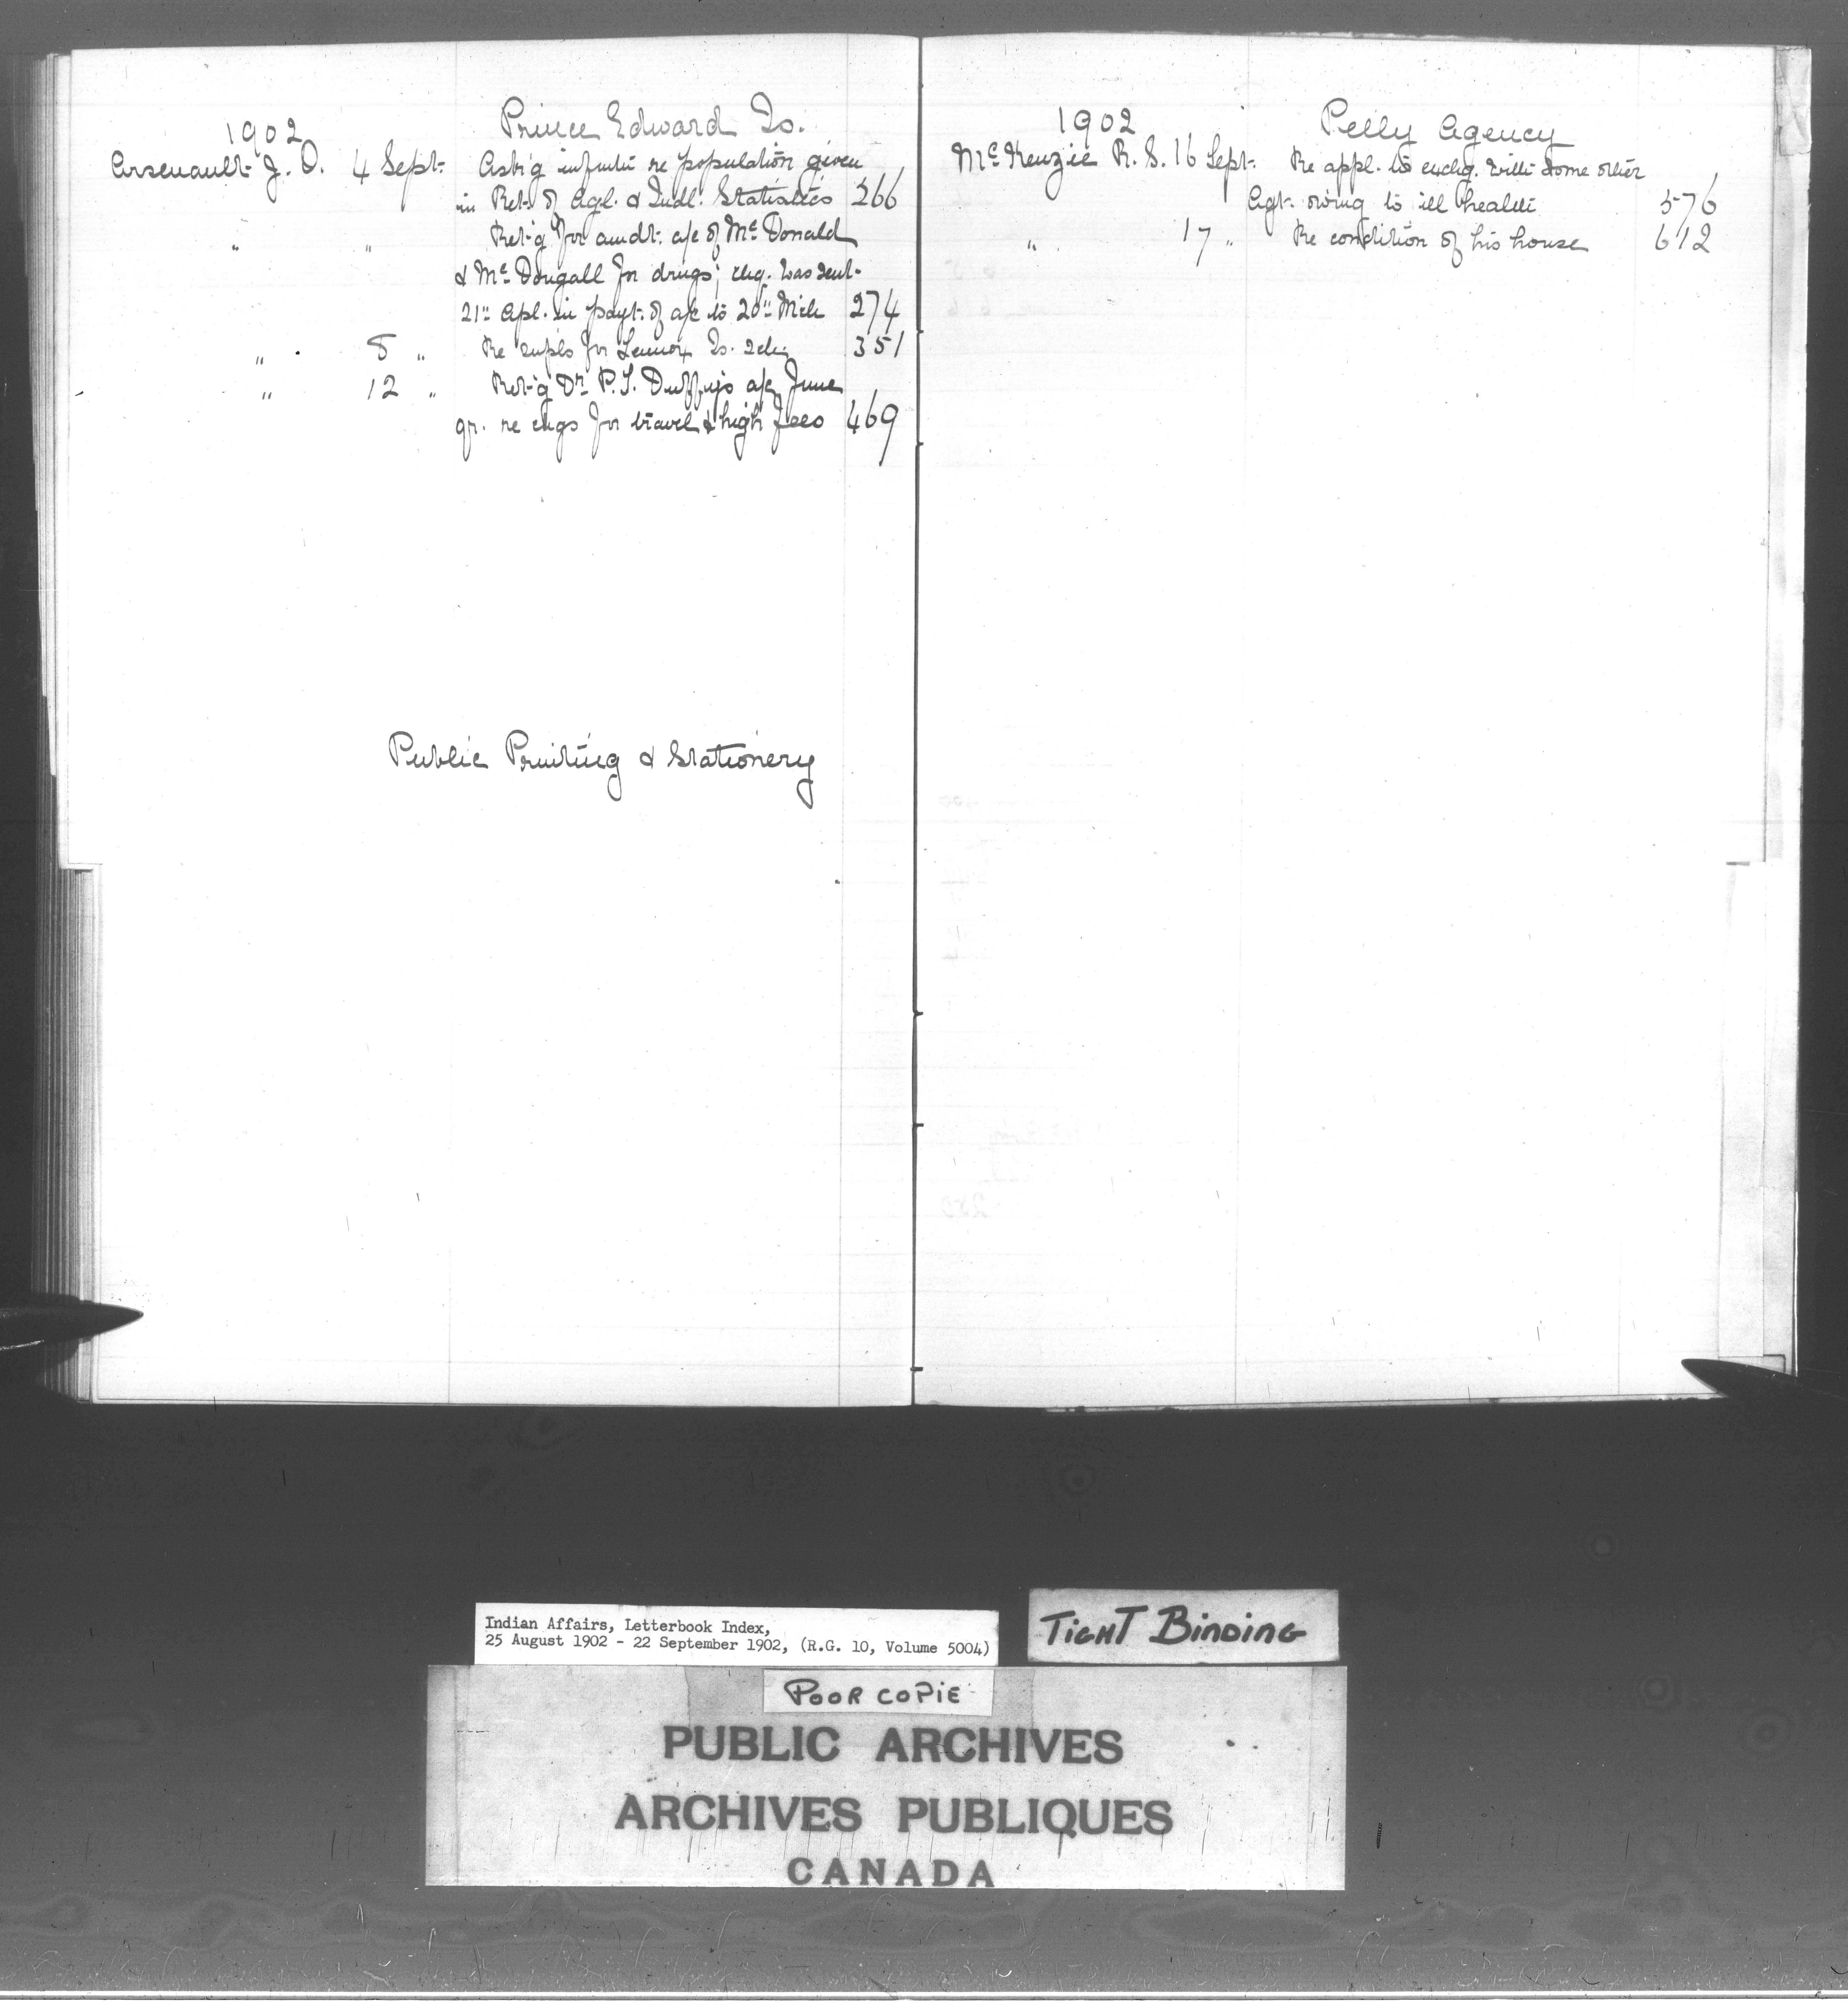 1902 Prince Edward Is.
Arsenault J. O. 4 Sept. Ask'g infmtn re population given
in Ret. of Agl. & Indl. Statistics 266
" " Ret'g for amdt. a/c of McDonald
& McDougall for drugs; chq. was sent
21st Apl. in payt. of a/c to 20th Mch 274
" 8 " Re supls for Lennox Is. sch. 351
" 12 " Ret'g Dr. P. J. Duffy's a/c June
qr. re chgs for travel & high fees 469
Public Printing & Stationery
1902 Pelly Agency
McKenzie R. S. 16 Sept. Re appl. to exchg. with some other
Agt. owing to ill health 576
" 17 " Re condition of his house 612
Indian Affairs, Letterbook Index,
25 August 1902 - 22 September 1902, (R.G. 10, Volume 5004)
TIGHT BINDING
POOR COPIE
PUBLIC ARCHIVES
ARCHIVES PUBLIQUES
CANADA